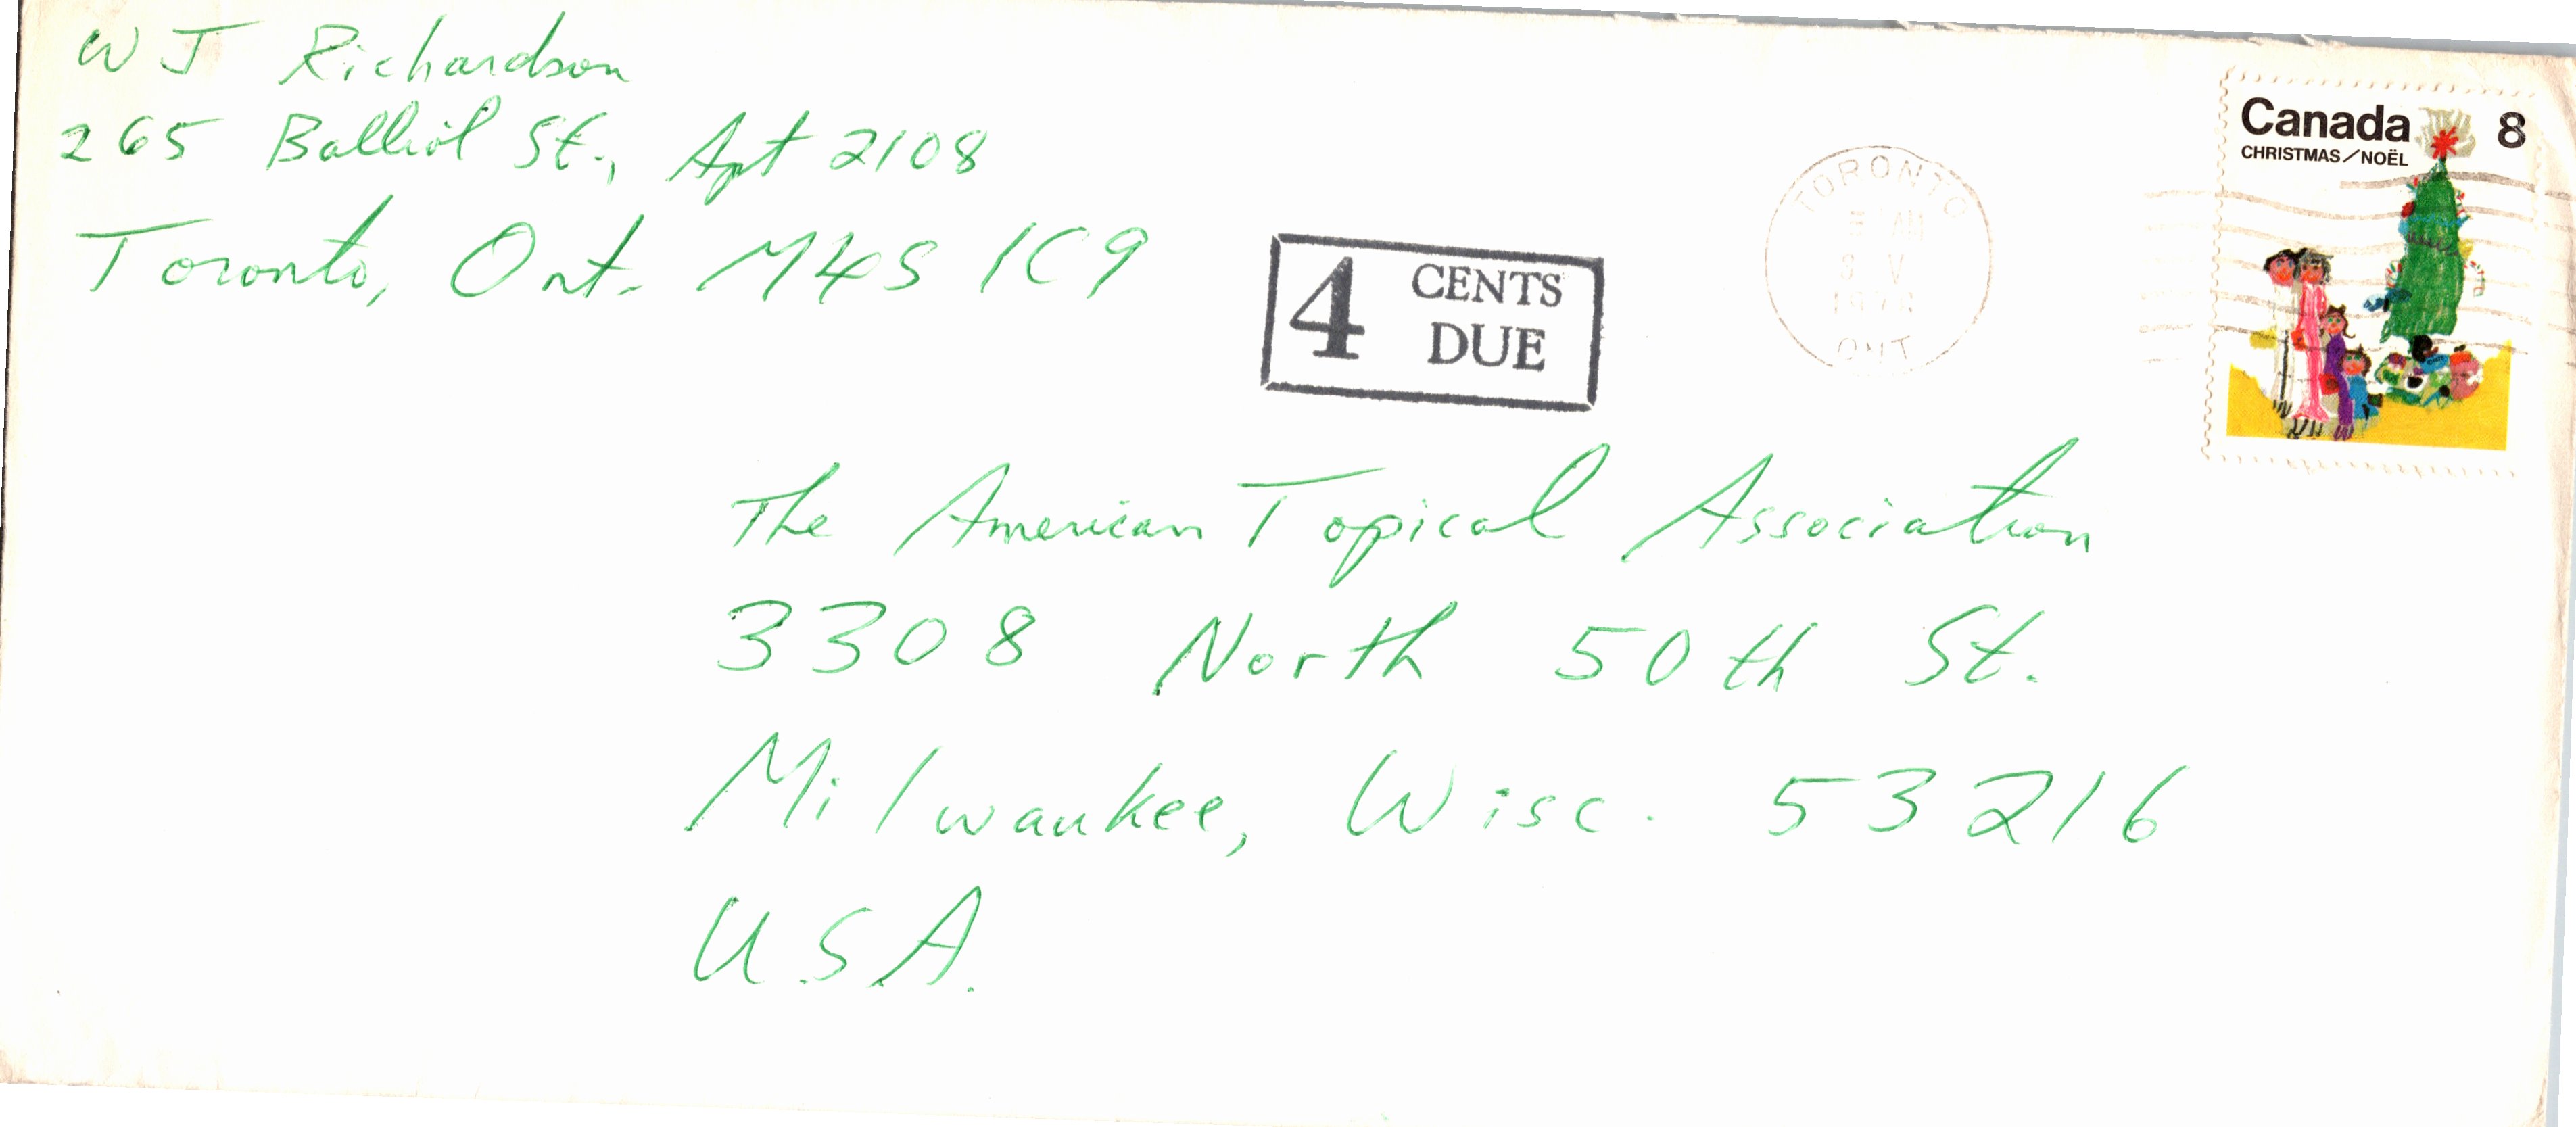 WJ Richardson
265 Balliol St., Apt 2108
Toronto, Ont. M4S 1C9
Canada 8
CHRISTMAS/NOËL
TORONTO
ONT
4 CENTS
DUE
The American Topical Association
3308 North 50th St.
Milwaukee, Wisc. 53216
U.S.A.